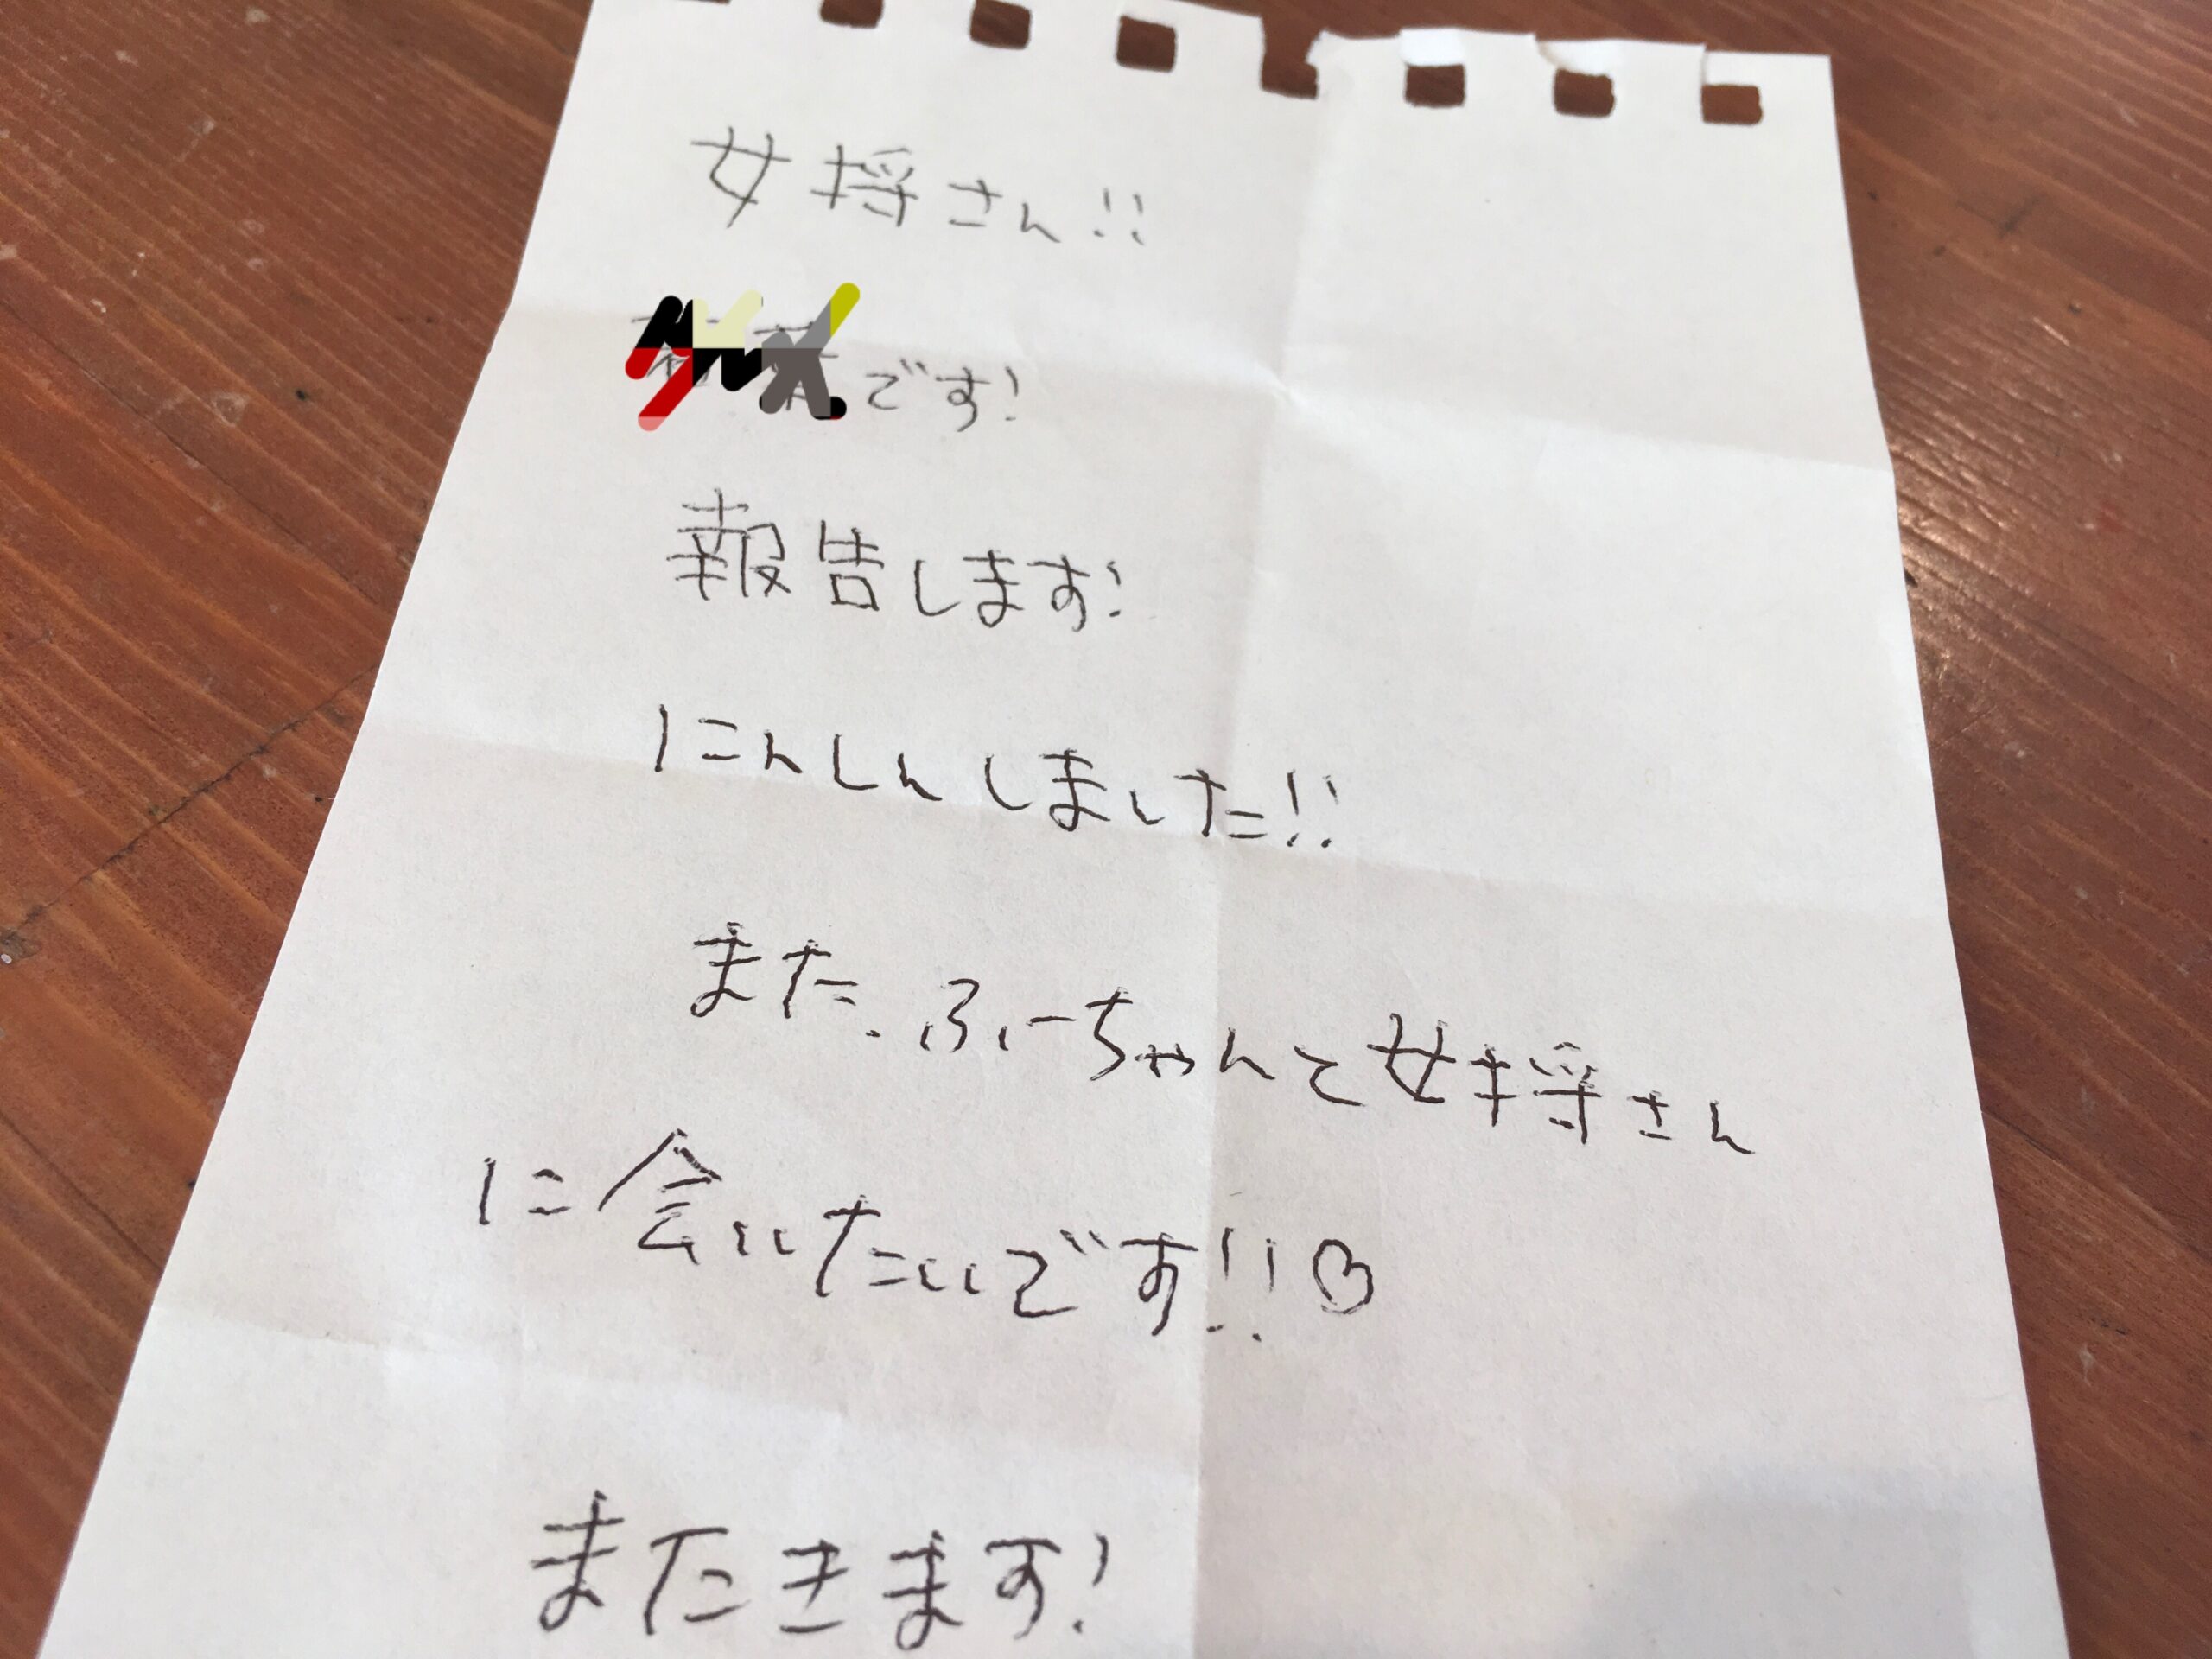 女将さん!!
です!
報告します!
にんしんしました!!
また、ふぃーちゃんと女将さん
に会いたいです!!♡
またきます!